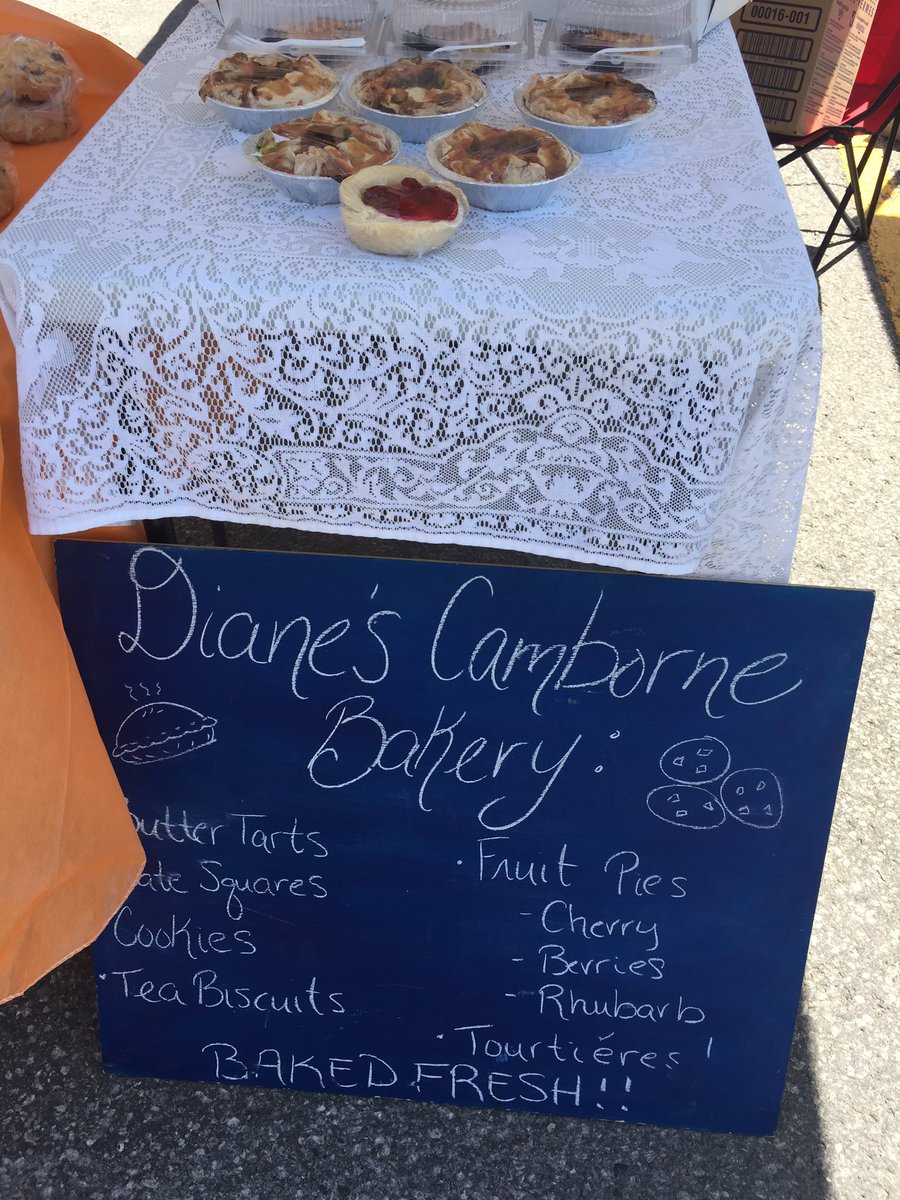 00016-001
Diane's Camborne
Bakery:
utter Tarts
ate Squares
Cookies
· Tea Biscuits
· Fruit Pies
- Cherry
- Berries
- Rhubarb
· Tourtiéres!
BAKED FRESH!!